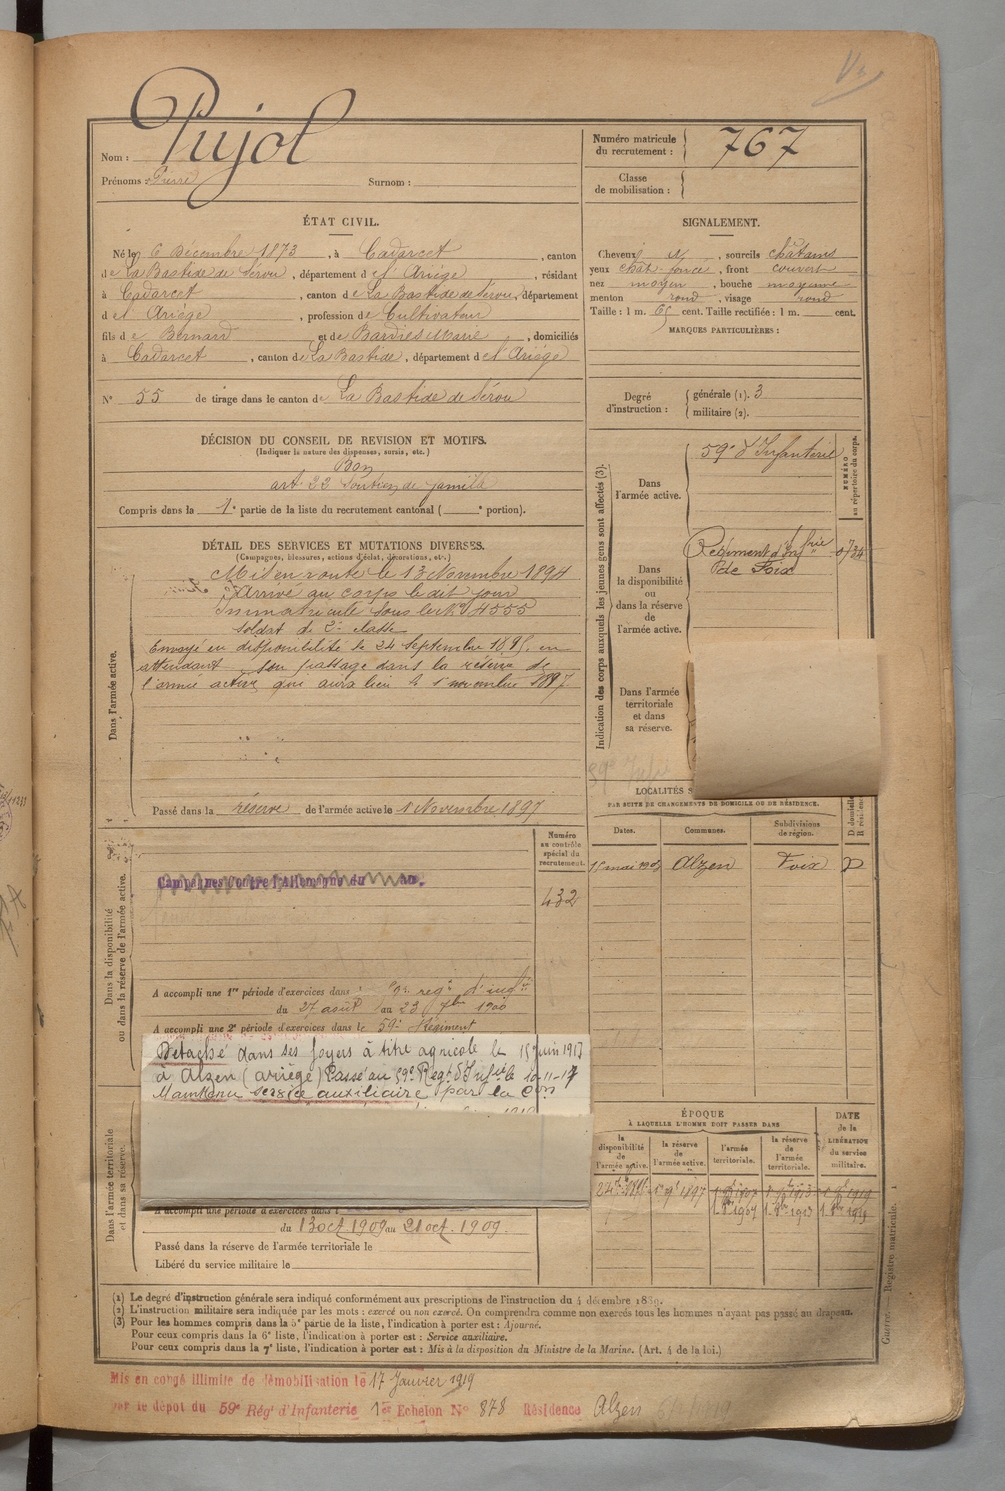 Pujol
Nom :
Prénoms : Pierre Surnom :
Numéro matricule du recrutement : 767
Classe de mobilisation :
ÉTAT CIVIL.
Né le 6 Décembre 1873, à Cadarcet, canton
de La Bastide de Sérou, département de l'Ariège, résidant
à Cadarcet, canton de La Bastide de Sérou, département
de l'Ariège, profession de Cultivateur
fils de Bernard et de Bardies Marie, domiciliés
à Cadarcet, canton de La Bastide, département de l'Ariège
N° 55 de tirage dans le canton de La Bastide de Sérou
SIGNALEMENT.
Cheveux id, sourcils châtains
yeux chât. foncé, front couvert
nez moyen, bouche moyenne
menton rond, visage rond
Taille : 1 m. 65 cent. Taille rectifiée : 1 m. cent.
MARQUES PARTICULIÈRES :
Degré d'instruction :
générale (1). 3
militaire (2).
DÉCISION DU CONSEIL DE REVISION ET MOTIFS.
(Indiquer la nature des dispenses, sursis, etc.)
Bon
art. 22 Soutien de famille
Compris dans la 1e partie de la liste du recrutement cantonal ( e portion).
DÉTAIL DES SERVICES ET MUTATIONS DIVERSES.
(Campagnes, blessures, actions d'éclat, décorations, etc.)
Dans l'armée active.
Mis en route le 13 Novembre 1894
Arrivé au corps le dit jour
Immatriculé sous le N° 4555
soldat de 2e classe
Envoyé en disponibilité le 24 septembre 1895, en
attendant son passage dans la réserve de
l'armée active qui aura lieu le 1er novembre 1897
Passé dans la réserve de l'armée active le 1 Novembre 1897
Indication des corps auxquels les jeunes gens sont affectés (3).
NUMÉRO au répertoire du corps.
Dans l'armée active.
59e d'Infanterie
Dans la disponibilité ou dans la réserve de l'armée active.
Régiment d'Infrie de Foix 0734
Dans l'armée territoriale et dans sa réserve.
LOCALITÉS S
PAR SUITE DE CHANGEMENTS DE DOMICILE OU DE RÉSIDENCE.
Dates. Communes. Subdivisions de région. D domicile R résidence
15 mai 1903 Alzen Foix D
Dans la disponibilité ou dans la réserve de l'armée active.
Numéro au contrôle spécial du recrutement.
432
Campagnes contre l'Allemagne du au.
A accompli une 1re période d'exercices dans le 59e regt d'infie
du 27 août au 23 7bre 1900
A accompli une 2e période d'exercices dans le 59e Régiment
Détaché dans ses foyers à titre agricole le 15 juin 1917
à Alzen (ariège) Passé au 59e Regt d'Infrie le 10-11-17
Maintenu service auxiliaire par la Con
Dans l'armée territoriale et dans sa réserve.
A accompli une période d'exercices dans
du 13 oct 1909 au 21 oct. 1909.
Passé dans la réserve de l'armée territoriale le
Libéré du service militaire le
ÉPOQUE
À LAQUELLE L'HOMME DOIT PASSER DANS
la disponibilité de l'armée active. la réserve de l'armée active. l'armée territoriale. la réserve de l'armée territoriale.
DATE de la LIBÉRATION du service militaire.
(1) Le degré d'instruction générale sera indiqué conformément aux prescriptions de l'instruction du 4 décembre 1889.
(2) L'instruction militaire sera indiquée par les mots : exercé ou non exercé. On comprendra comme non exercés tous les hommes n'ayant pas passé au drapeau.
(3) Pour les hommes compris dans la 5e partie de la liste, l'indication à porter est : Ajourné.
Pour ceux compris dans la 6e liste, l'indication à porter est : Service auxiliaire.
Pour ceux compris dans la 7e liste, l'indication à porter est : Mis à la disposition du Ministre de la Marine. (Art. 4 de la loi.)
Registre matricule.
Mis en congé illimité de démobilisation le 17 Janvier 1919
par le dépôt du 59e Rég' d'Infanterie 1er Echelon N° 878 Résidence Alzen